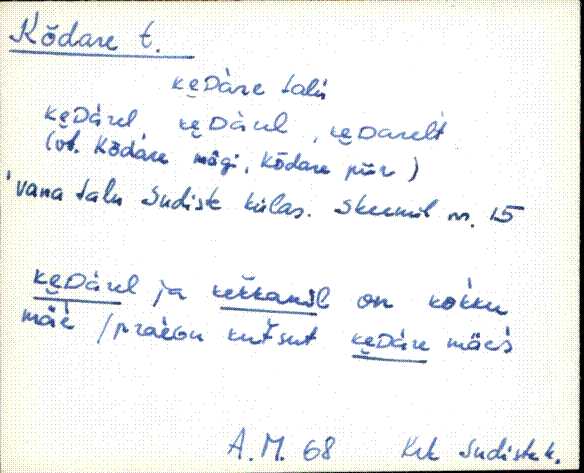 Kõdare t.
kẹDàre talù
kẹDárel kẹDárel, kẹDarelt
(vt. Kõdare mägi, Kõdare püü)
vana talu Sudiste külas. Skeemil nr. 15
kẹDárel ja on kokku
mäè / praèGu kut̆sut kẹDàre mäes
A. M. 68 Krk Sudiste k.